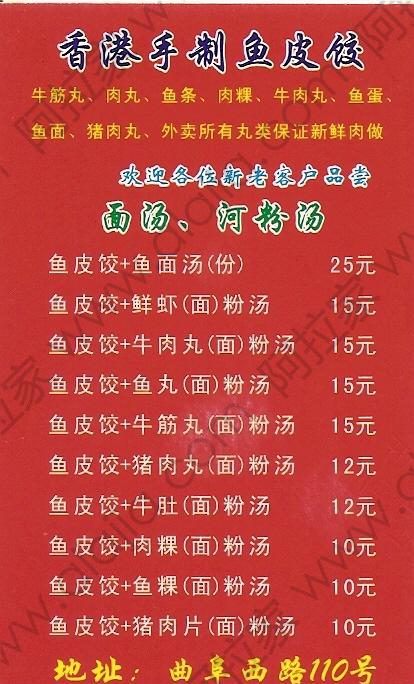 香港手制鱼皮饺
牛筋丸、肉丸、鱼条、肉粿、牛肉丸、鱼蛋、
鱼面、猪肉丸、外卖所有丸类保证新鲜肉做
欢迎各位新老客户品尝
面汤、河粉汤
鱼皮饺+鱼面汤(份) 25元
鱼皮饺+鲜虾(面)粉汤 15元
鱼皮饺+牛肉丸(面)粉汤 15元
鱼皮饺+鱼丸(面)粉汤 15元
鱼皮饺+牛筋丸(面)粉汤 15元
鱼皮饺+猪肉丸(面)粉汤 12元
鱼皮饺+牛肚(面)粉汤 12元
鱼皮饺+肉粿(面)粉汤 10元
鱼皮饺+鱼粿(面)粉汤 10元
鱼皮饺+猪肉片(面)粉汤 10元
地址：曲阜西路110号
阿拉家 www.alajia.com